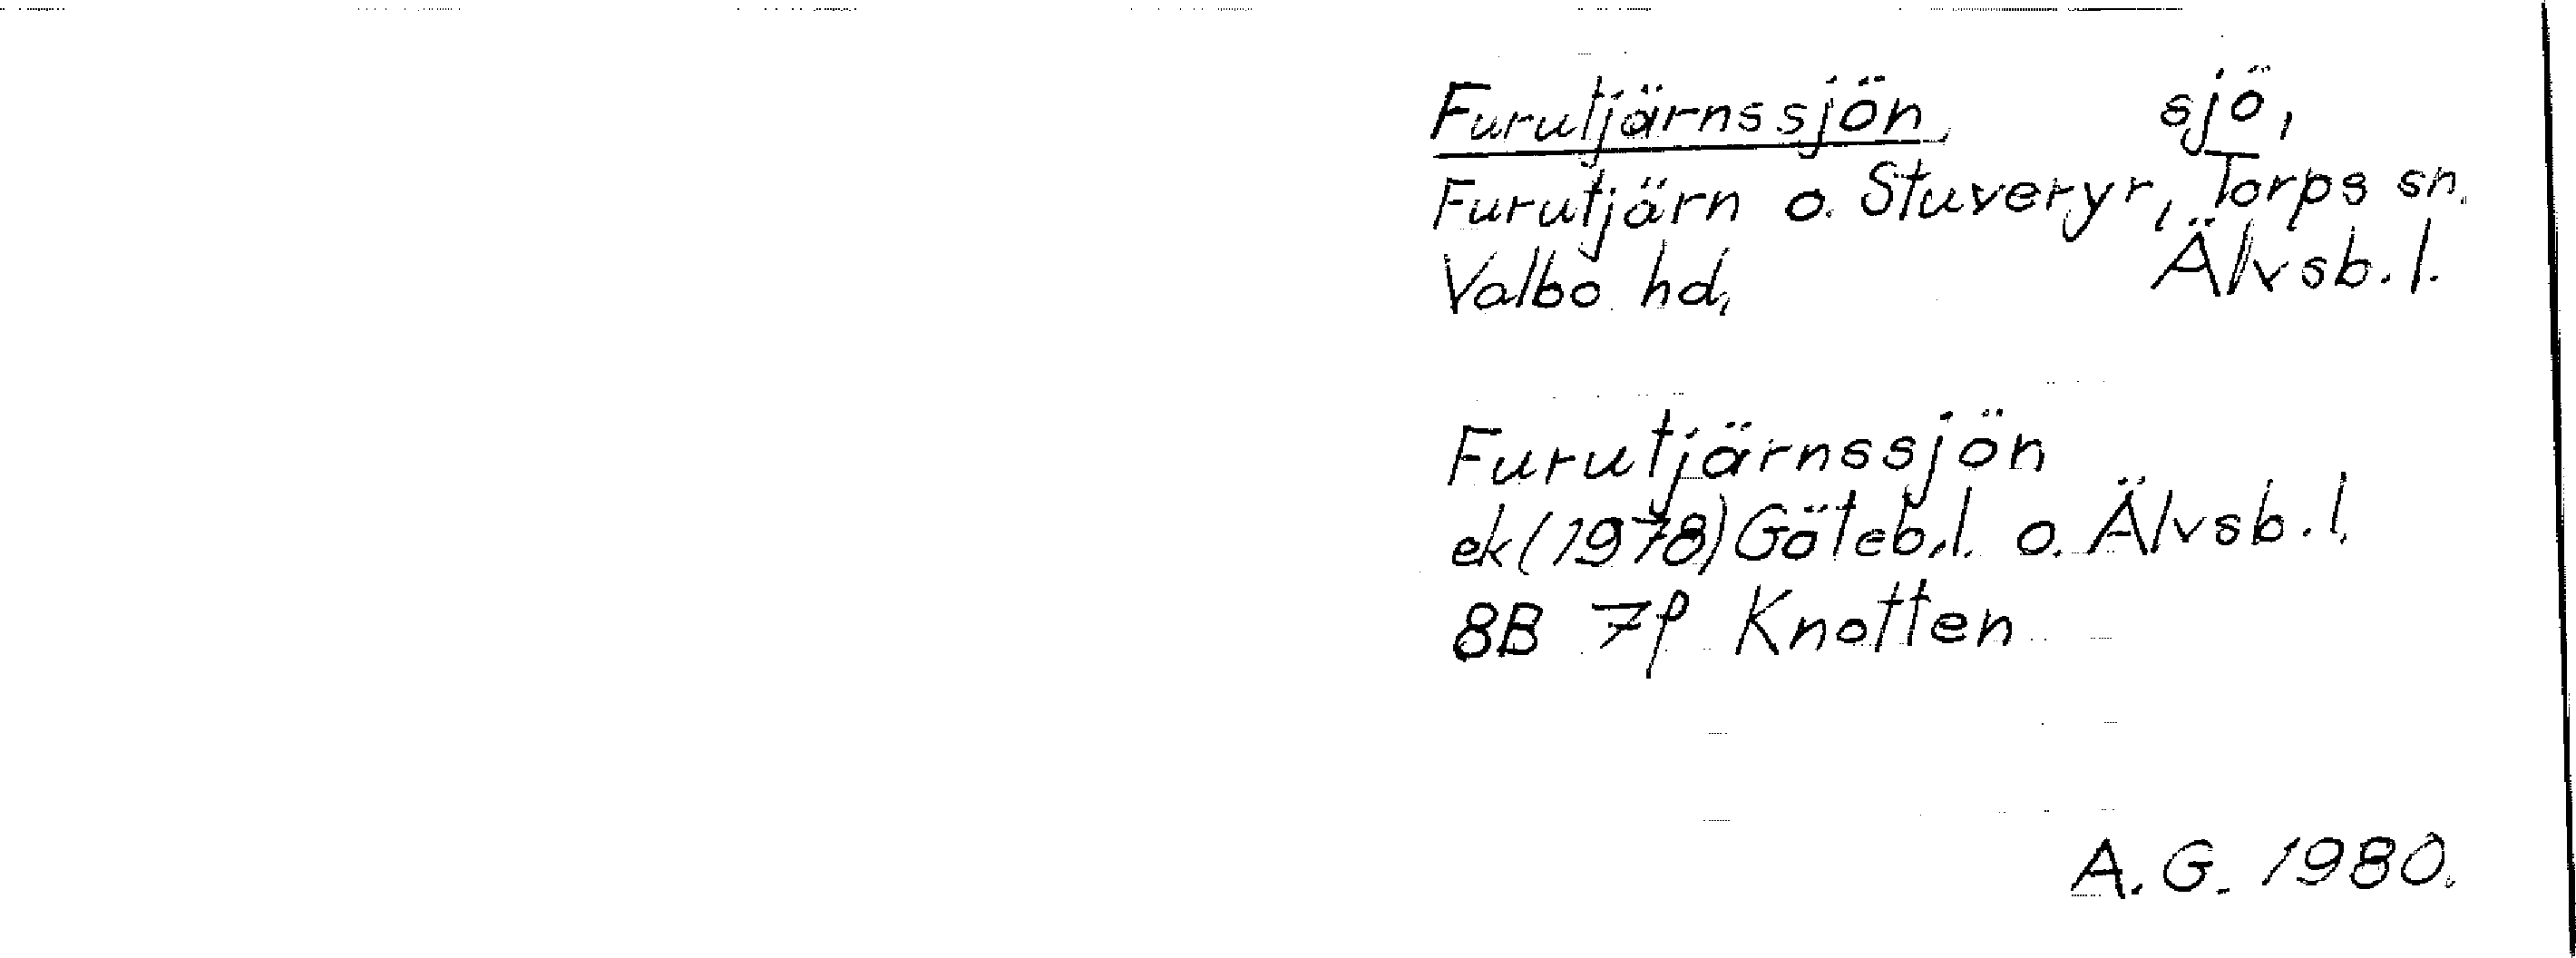 Furutjärnssjön, sjö,
Furutjärn o. Stuveryr, Torps sn.
Valbo hd, Älvsb. l.
Furutjärnssjön
ek (1978) Göteb. l. o. Älvsb. l.
8B 7f Knotten
A. G. 1980.